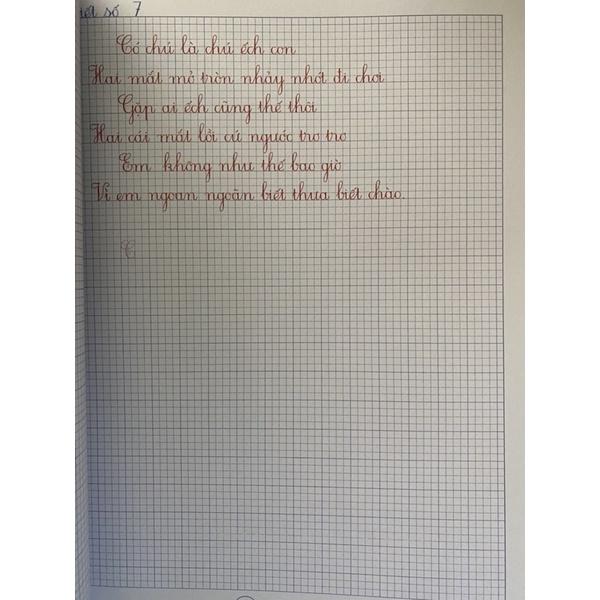 số 7
Có chú là chú ếch con
Hai mắt mở tròn nhảy nhót đi chơi
Gặp ai ếch cũng thế thôi
Hai cái mắt lồi cứ ngước trơ trơ
Em không như thế bao giờ
Vì em ngoan ngoãn biết thưa biết chào.
C